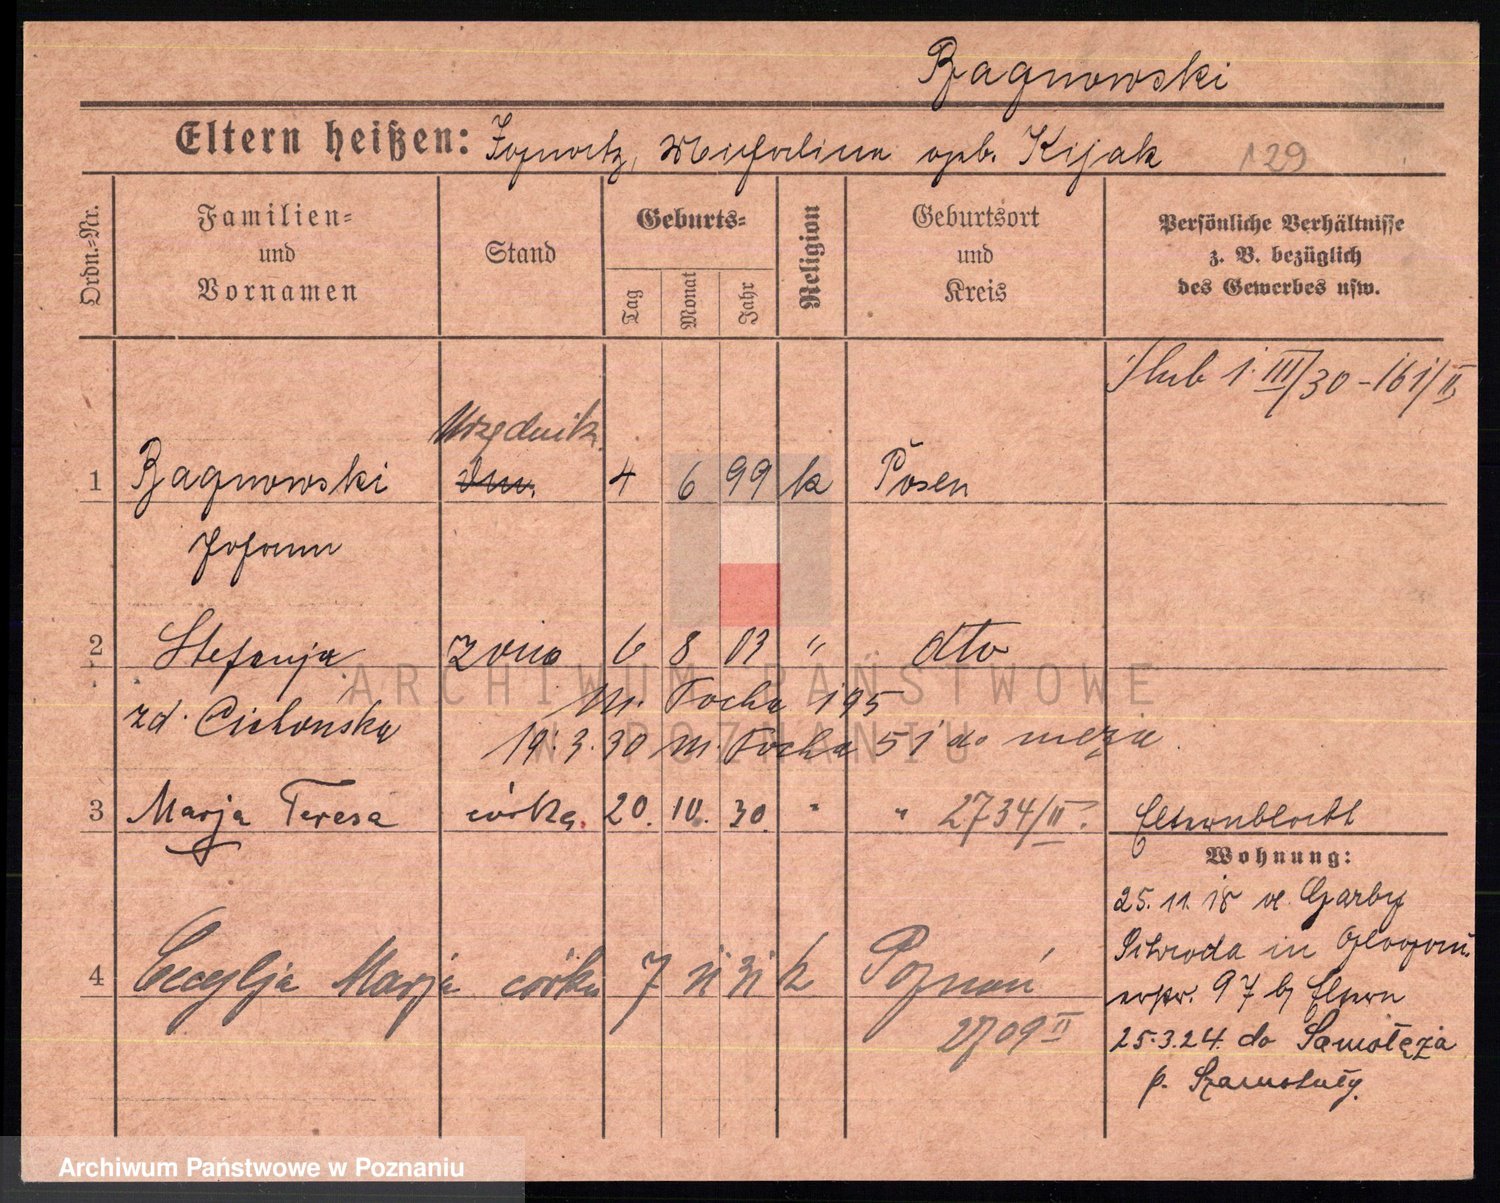 Bagnowski
Eltern heißen: Ignatz, Michalina geb. Kijak 129
Ordn.=Nr.
Familien=
und
Vornamen
Stand
Geburts=
Tag
Monat
Jahr
Religion
Geburtsort
und
Kreis
Persönliche Verhältnisse
z. B. bezüglich
des Gewerbes usw.
Ślub 1. III/30 - 161/II
Urzędnik
1 Bagnowski 4 6 99 k Posen
Johann
2 Stefanja żona 6 8 03 " dto
zd. Cichońska M. Focha 195
19.3.30 M. Focha 51 do męża
3 Marja Teresa córka 20. 10. 30. " " 2734/II. Elternblatt
Wohnung:
4 Cecylja Marja córka 7 XI 31 k Poznań
2709 II
25. 11. 18 v. Garby
Schroda in Glogau
97 b/ Eltern
25.3.24. do Samołęża
p. Szamotuły.
ARCHIWUM PAŃSTWOWE
W POZNANIU
Archiwum Państwowe w Poznaniu